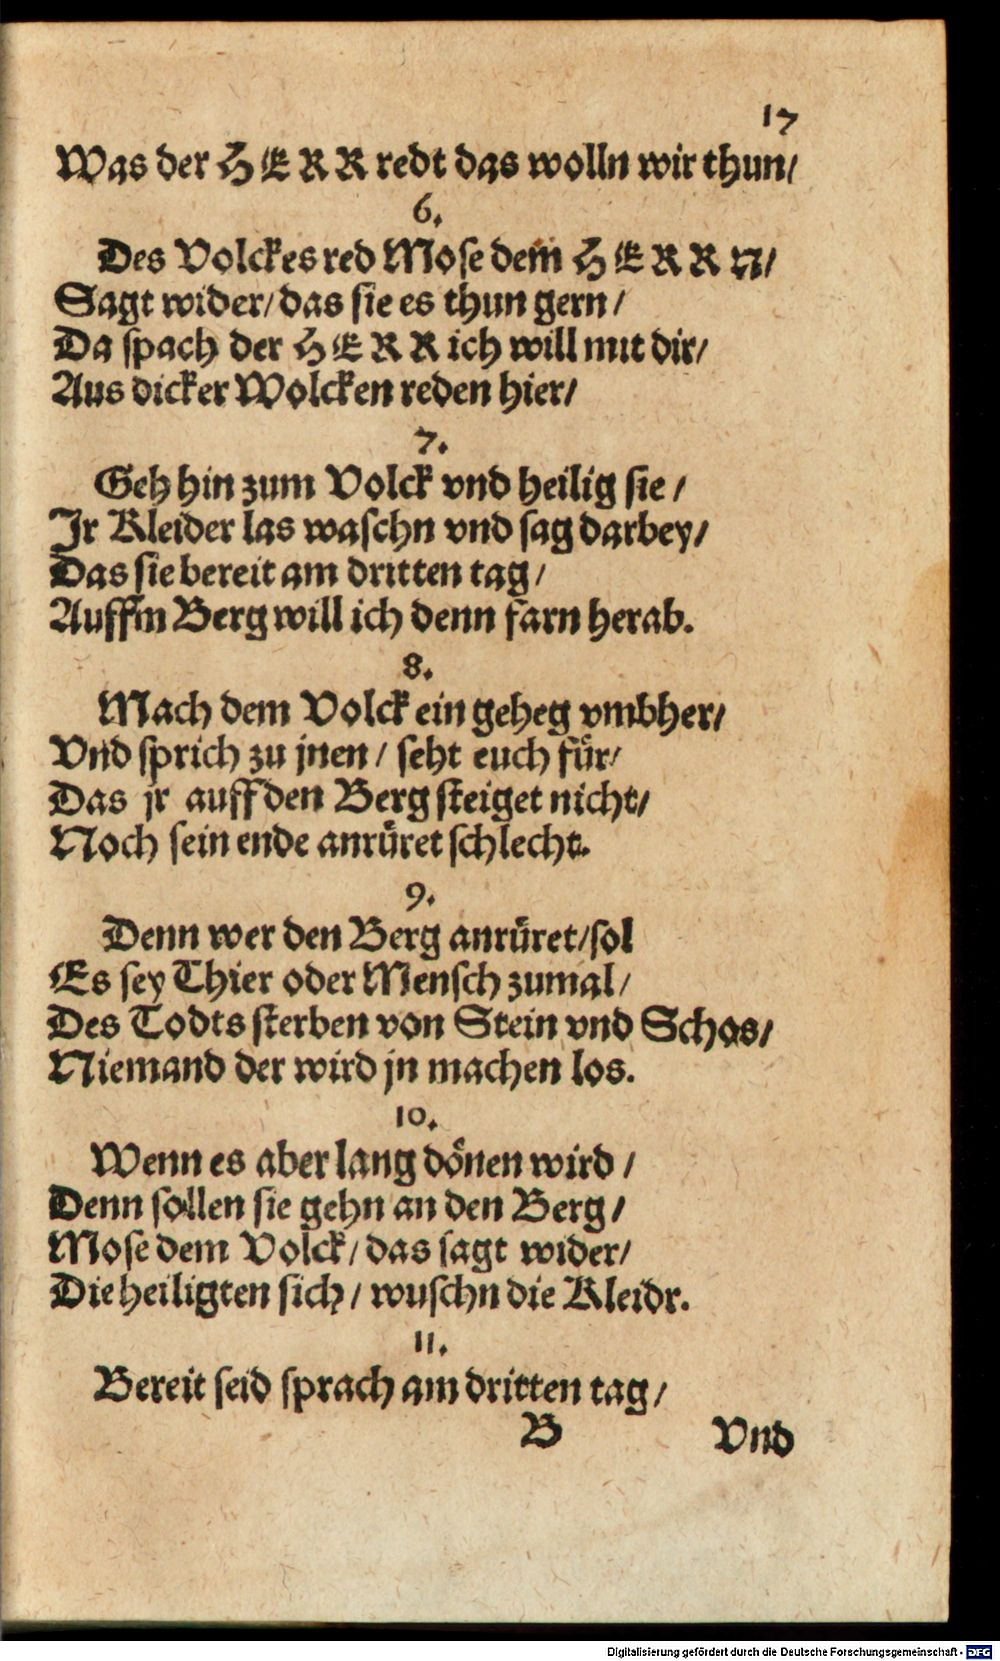 17
Was der HERR redt das wolln wir thun/
6.
Des Volckes red Mose dem HERRN/
Sagt wider/ das sie es thun gern/
Da spach der HERR ich will mit dir/
Aus dicker Wolcken reden hier/
7.
Geh hin zum Volck vnd heilig sie/
Jr Kleider las waschn vnd sag darbey/
Das sie bereit am dritten tag/
Auffm Berg will ich denn farn herab.
8.
Mach dem Volck ein geheg vmbher/
Vnd sprich zu jnen/ seht euch für/
Das jr auff den Berg steiget nicht/
Noch sein ende anrüret schlecht.
9.
Denn wer den Berg anrüret/ sol
Es sey Thier oder Mensch zumal/
Des Todts sterben von Stein vnd Schos/
Niemand der wird jn machen los.
10.
Wenn es aber lang dönen wird/
Denn sollen sie gehn an den Berg/
Mose dem Volck/ das sagt wider/
Die heiligten sich/ wuschn die Kleidr.
11.
Bereit seid sprach am dritten tag/
B Vnd
Digitalisierung gefördert durch die Deutsche Forschungsgemeinschaft - DFG